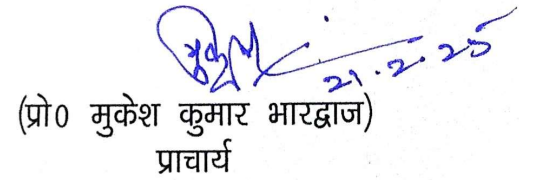 मुकेश
21.2.25
(प्रो0 मुकेश कुमार भारद्वाज)
प्राचार्य